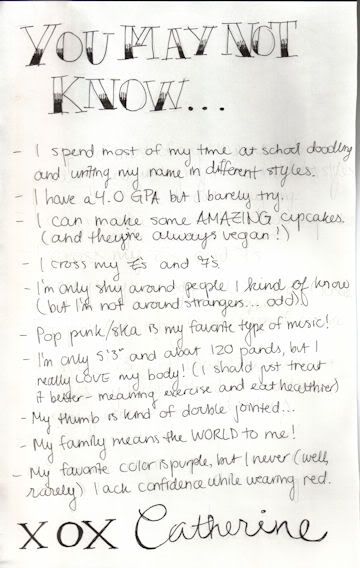 YOU MAY NOT
KNOW...
- I spend most of my time at school doodling
and writing my name in different styles.
- I have a 4.0 GPA but I barely try.
- I can make some AMAZING cupcakes.
(and they're always vegan!)
- I cross my z's and 7's.
- I'm only shy around people I kind of know
(but I'm not around strangers... odd)
- Pop punk/ska is my favorite type of music!
- I'm only 5'3" and about 120 pounds, but I
really LOVE my body! (I should just treat
it better - meaning exercise and eat healthier)
- My thumb is kind of double jointed...
- My family means the WORLD to me!
- My favorite color is purple, but I never (well,
rarely) lack confidence while wearing red.
XOX Catherine